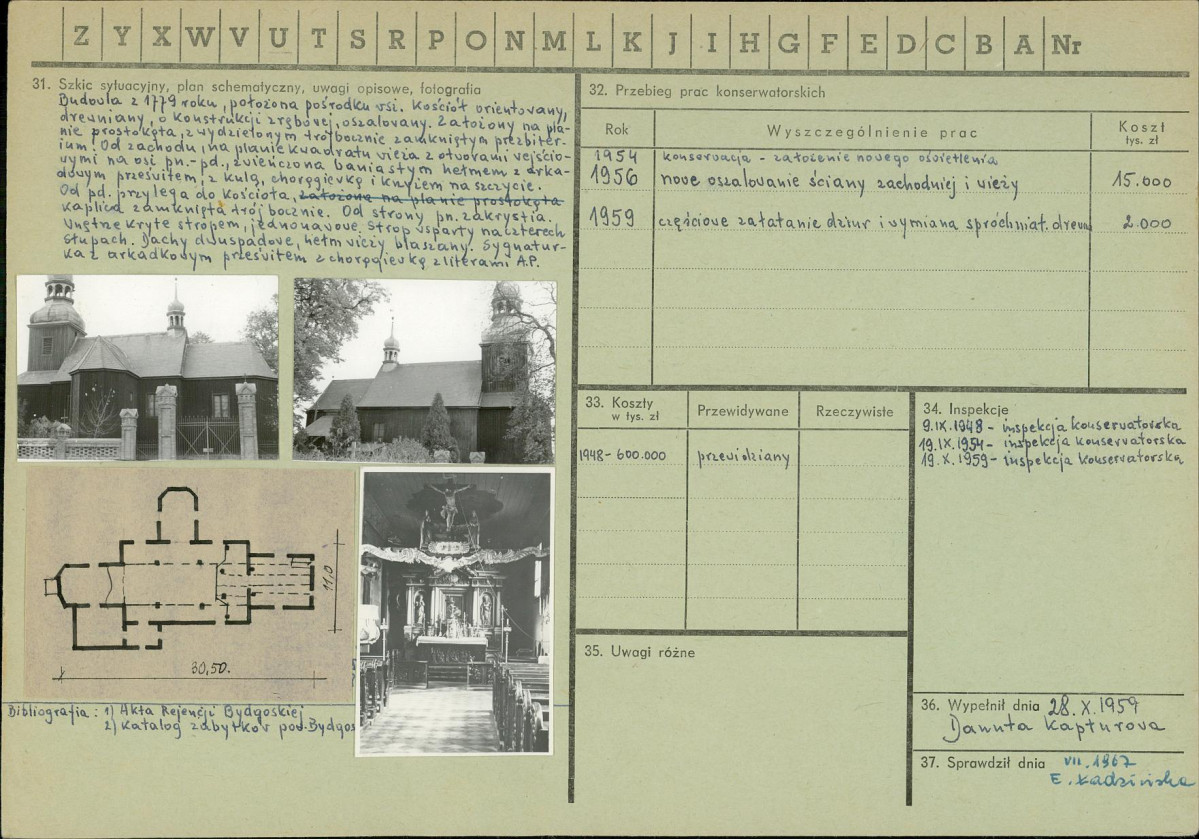 Z Y X W V U T S R P O N M L K J I H G F E D C B A Nr
31. Szkic sytuacyjny, plan schematyczny, uwagi opisowe, fotografia
Budowla z 1779 roku, położona pośrodku wsi. Kościół orientowany,
drewniany, o konstrukcji zrębowej, oszalowany. Założony na pla-
nie prostokąta, z wydzielonym trójbocznie zamkniętym prezbiter-
ium. Od zachodu, na planie kwadratu wieża z otworami wejścio-
wymi na osi pn.-pd., zwieńczona baniastym hełmem z arka-
dowym prześwitem, z kulą, chorągiewką i krzyżem na szczycie.
Od pd. przylega do kościoła, założona na planie prostokąta
kaplica zamknięta trójbocznie. Od strony pn. zakrystia.
Wnętrze kryte stropem, jednonawowe. Strop wsparty na czterech
słupach. Dachy dwuspadowe, hełm wieży blaszany. Sygnatur-
ka z arkadkowym prześwitem z chorągiewką z literami A.P.
11,0
30,50.
Bibliografia: 1) Akta Rejencji Bydgoskiej
2) Katalog zabytków pow. Bydgos
32. Przebieg prac konserwatorskich
Rok Wyszczególnienie prac Koszt
tys. zł
1954 konserwacja - założenie nowego oświetlenia
1956 nowe oszalowanie ściany zachodniej i wieży 15.000
1959 częściowe załatanie dziur i wymiana spróchniał. drewna 2.000
33. Koszty
w tys. zł Przewidywane Rzeczywiste
1948 - 600.000 przewidziany
34. Inspekcje
9.IX.1948 - inspekcja konserwatorska
19.IX.1954 - inspekcja konserwatorska
19.X.1959 - inspekcja konserwatorska
35. Uwagi różne
36. Wypełnił dnia 28.X.1959
Danuta Kapturowa
37. Sprawdził dnia VII.1967
E. Ładzińska